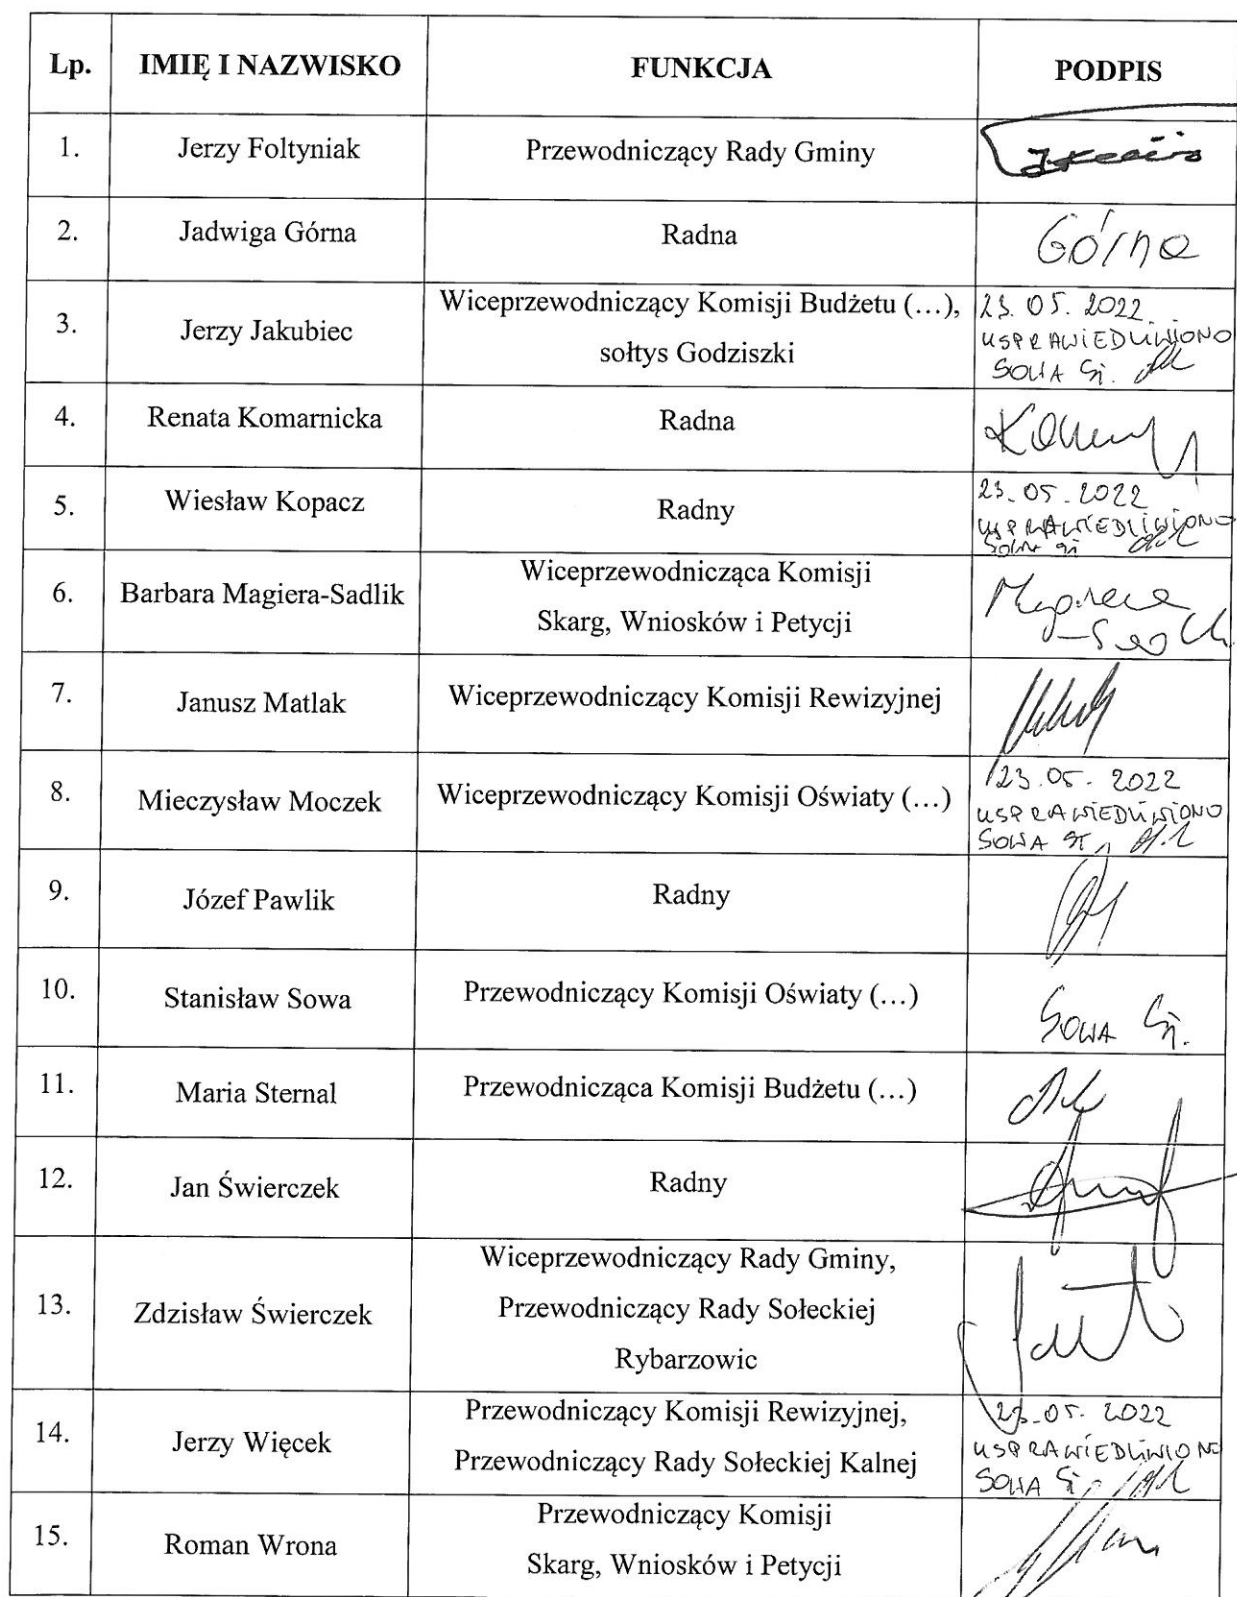 Lp. IMIĘ I NAZWISKO FUNKCJA PODPIS
1. Jerzy Foltyniak Przewodniczący Rady Gminy
2. Jadwiga Górna Radna Górna
3. Jerzy Jakubiec Wiceprzewodniczący Komisji Budżetu (…),
sołtys Godziszki
23.05.2022
USPRAWIEDLIWIONO
SOWA St.
4. Renata Komarnicka Radna
5. Wiesław Kopacz Radny
23.05.2022
USPRAWIEDLIWIONO
SOWA St
6. Barbara Magiera-Sadlik Wiceprzewodnicząca Komisji
Skarg, Wniosków i Petycji
7. Janusz Matlak Wiceprzewodniczący Komisji Rewizyjnej
8. Mieczysław Moczek Wiceprzewodniczący Komisji Oświaty (…)
23.05.2022
USPRAWIEDLIWIONO
SOWA ST
9. Józef Pawlik Radny
10. Stanisław Sowa Przewodniczący Komisji Oświaty (…) SOWA St.
11. Maria Sternal Przewodnicząca Komisji Budżetu (…)
12. Jan Świerczek Radny
13. Zdzisław Świerczek Wiceprzewodniczący Rady Gminy,
Przewodniczący Rady Sołeckiej
Rybarzowic
14. Jerzy Więcek Przewodniczący Komisji Rewizyjnej,
Przewodniczący Rady Sołeckiej Kalnej
23.05.2022
USPRAWIEDLIWIONO
SOWA St.
15. Roman Wrona Przewodniczący Komisji
Skarg, Wniosków i Petycji